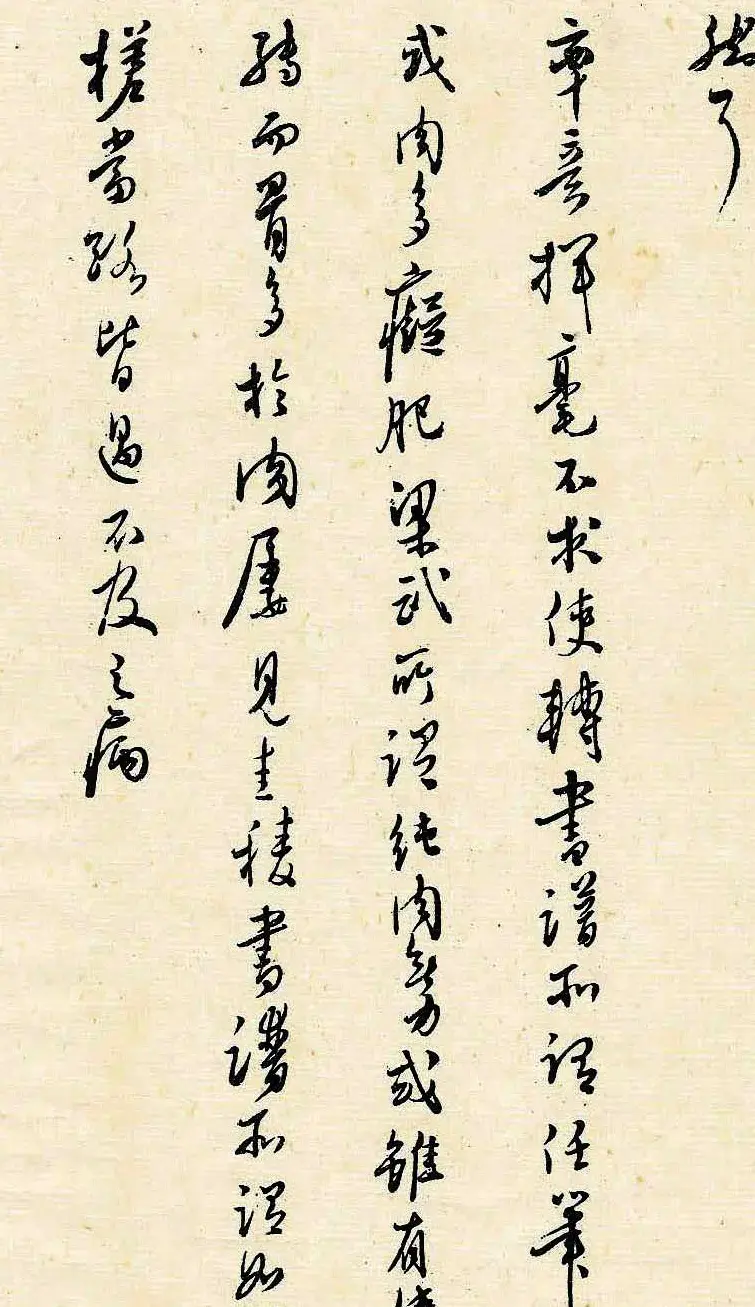 了
率意揮毫不求使轉書譜所謂任筆
或肉多癡肥梁武所謂純肉無力或雖有
轉而骨多於肉屢見圭稜書譜所謂如
槎當路皆過不及之病